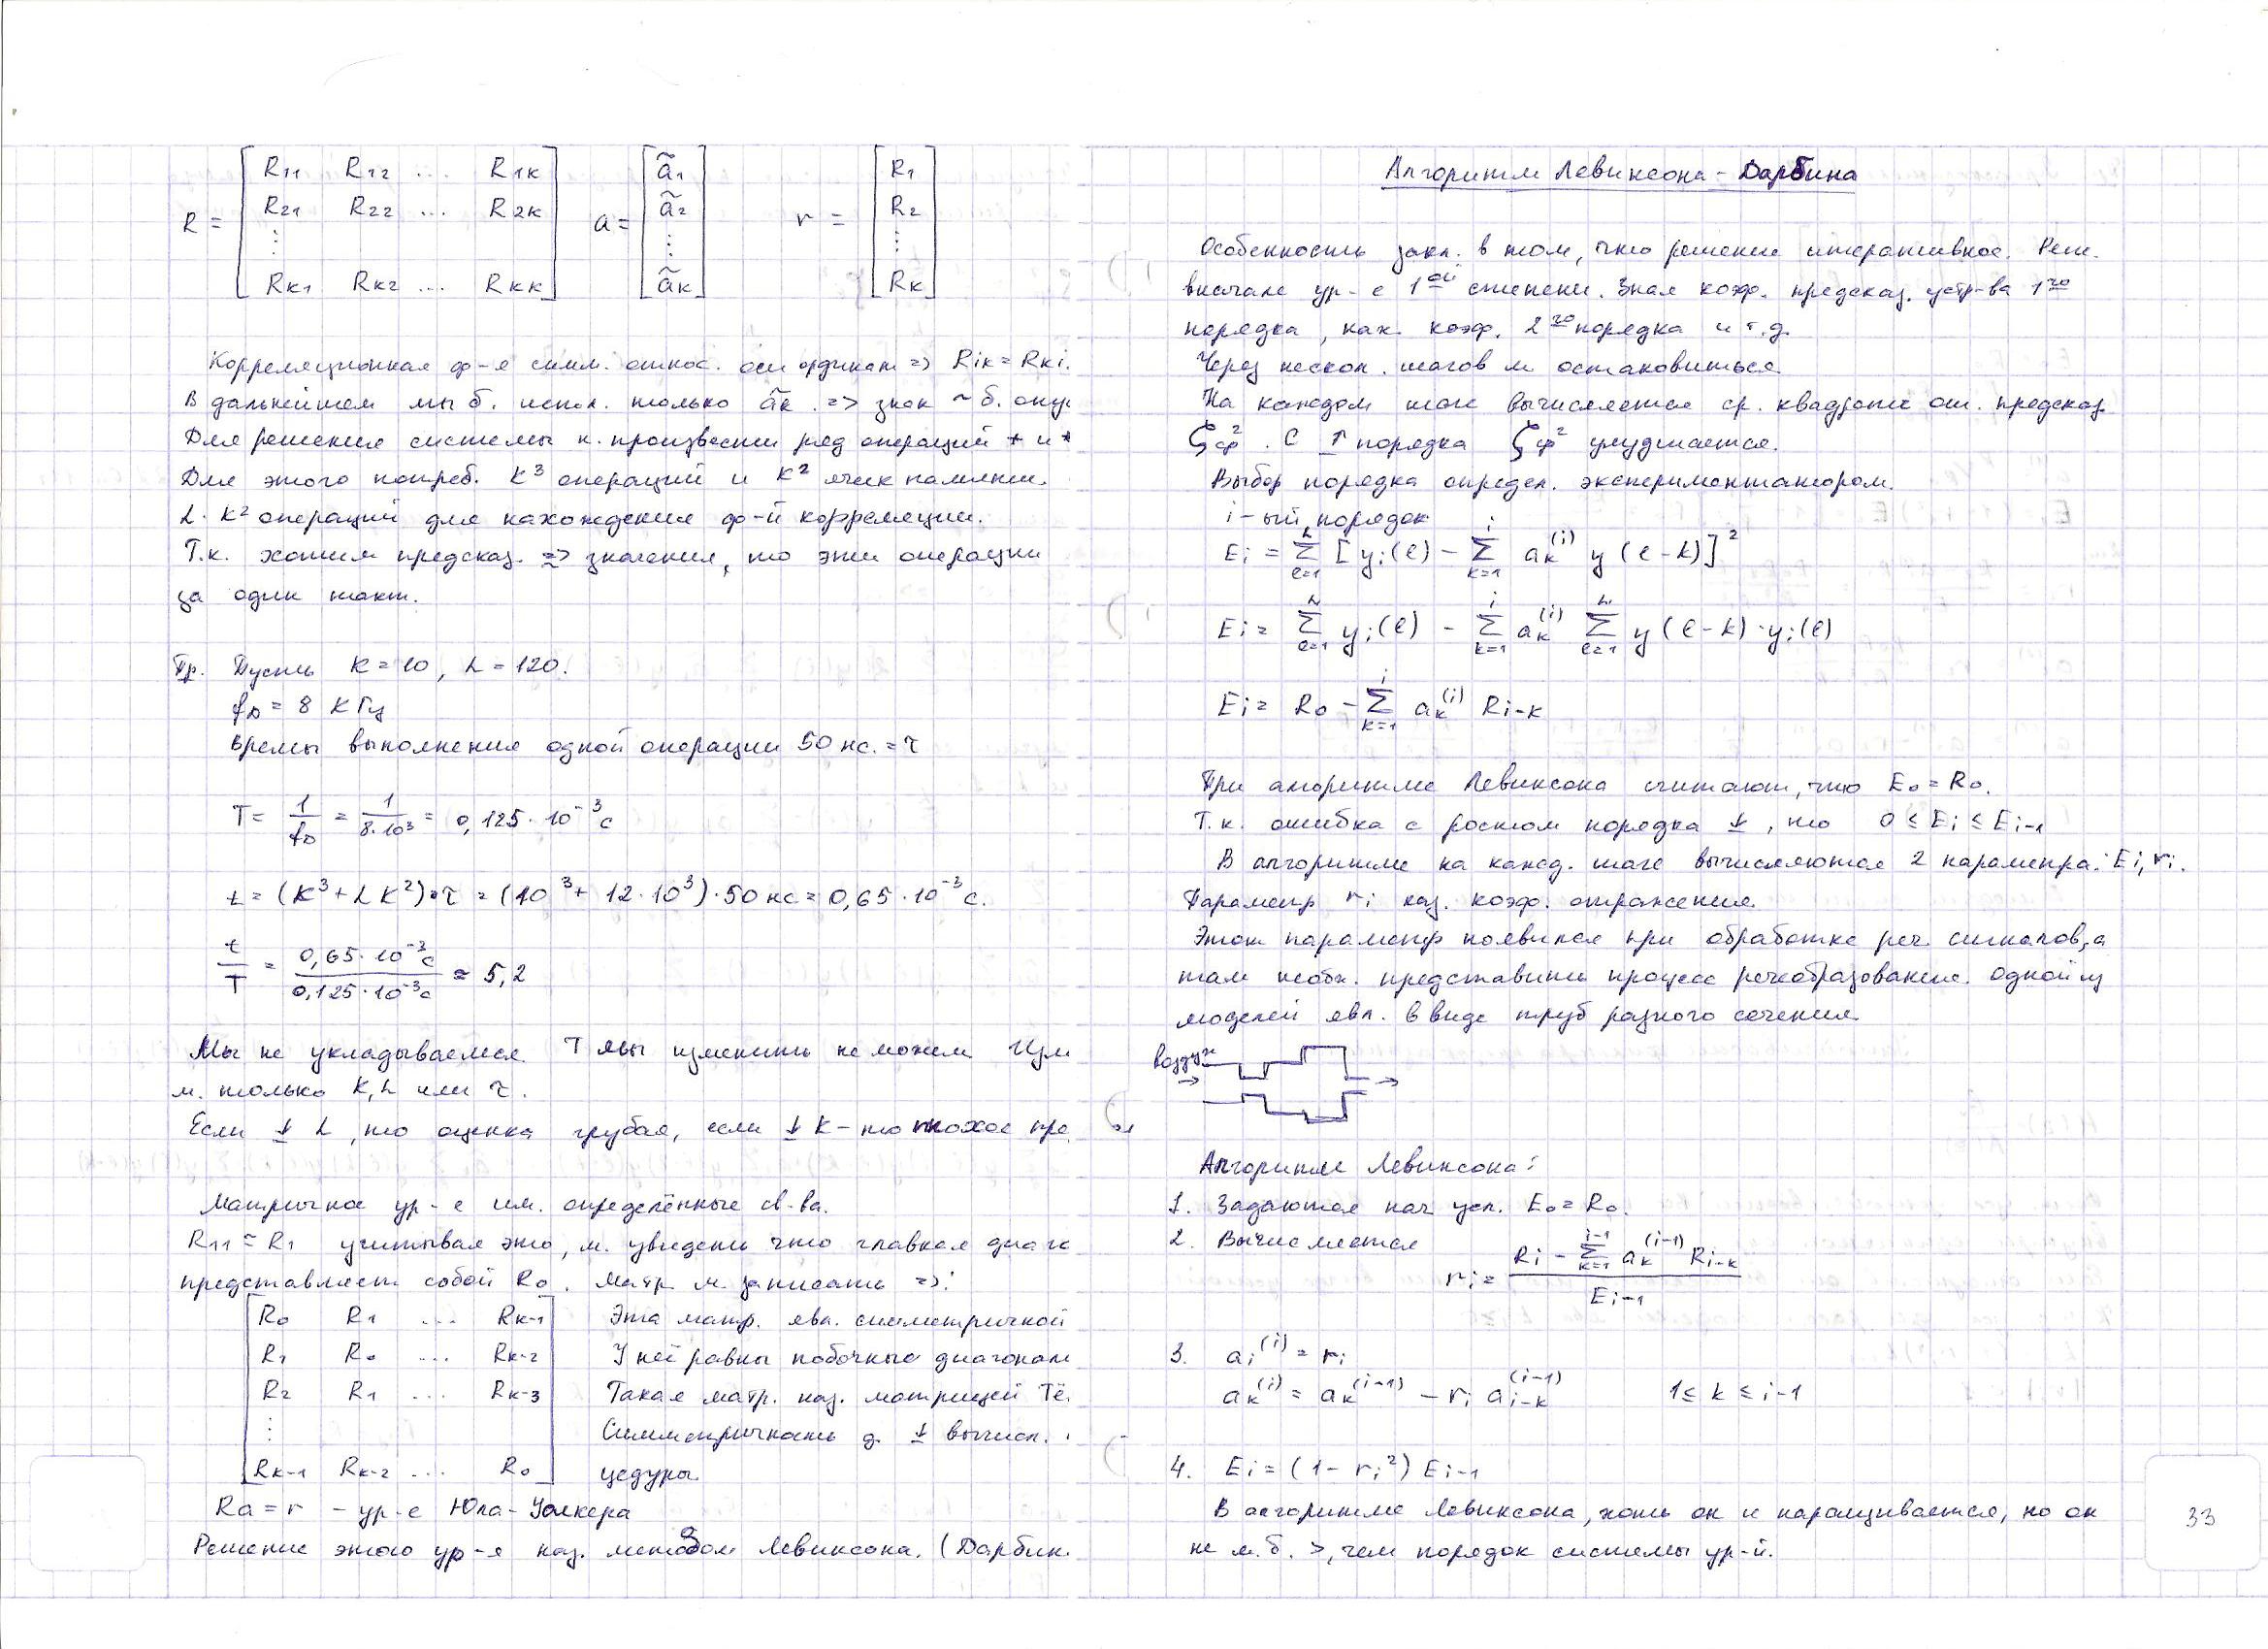 R = [R11 R12 ... R1K
R21 R22 ... R2K
⋮
RK1 RK2 ... RKK] a = [ã1 ã2 ⋮ ãK] r = [R1 R2 ⋮ RK]
Корреляционная ф-я симм. относ. оси ординат => Rik = Rki.
В дальнейшем мы б. испол. только ãк. => знак ~ б. опус
Для решения системы н. произвести ряд операций + и *
Для этого потреб. K³ операций и K² ячеек памяти.
L·K² операций для нахождения ф-й корреляции.
Т.к. хотим предсказ. => значения, то эти операции
за один такт.
Пр. Пусть K = 10, L = 120.
fд = 8 кГц
Времы выполнения одной операции 50 нс. = τ
T = 1/fд = 1/8·10³ = 0,125·10⁻³ с
t = (K³ + LK²)·τ = (10³ + 12·10³)·50 нс = 0,65·10⁻³ с.
t/T = 0,65·10⁻³с / 0,125·10⁻³с = 5,2
Мы не укладываемся. T мы изменить не можем. Изм
м. только K, L или τ.
Если ↓ L, то оценка грубая, если ↓ K – то плохое пре
Матричное ур-е им. определённые св-ва.
R11 = R1 учитывая это, м. увидеть что главная диаго
представляет собой R0. Матр. м. записать =>:
[R0 R1 ... RK-1 Эта матр. явл. симметричной
R1 R0 ... RK-2 У неё равны побочные диагонали
R2 R1 ... RK-3 Такая матр. наз. матрицей Тё
⋮ Симметричность д. ↓ вычисл.
RK-1 RK-2 ... R0] цедуры.
Ra = r – ур-е Юла-Уолкера
Решение этого ур-я наз. методом Левинсона. (Дарбин
Алгоритм Левинсона - Дарбина
Особенность закл. в том, что решение итеративное. Реш.
вначале ур-е 1ой степени. Зная коэф. предсказ. устр-ва 1го
порядка, нах. коэф. 2го порядка и т.д.
Через нескол. шагов м остановиться.
На каждом шаге вычисляется ср. квадрат ош. предсказ.
ζср². С ↑ порядка ζср² ухудшается.
Выбор порядка определ. экспериментатором.
i-ый порядок
Ei = Σ(l=1..L) [yi(l) – Σ(k=1..i) ak^(i) y(l-k)]²
Ei = Σ(l=1..L) yi(l) – Σ(k=1..i) ak^(i) Σ(l=1..L) y(l-k)·yi(l)
Ei = R0 – Σ(k=1..i) ak^(i) Ri-k
При алгоритме Левинсона считают, что E0 = R0.
Т.к. ошибка с ростом порядка ↓, то 0 ≤ Ei ≤ Ei-1
В алгоритме на кажд. шаге вычисляются 2 параметра: Ei, ri.
Параметр ri наз. коэф. отражения.
Этот параметр появился при обработке реч. сигналов, а
там необх. представить процесс речеобразования. Одной из
моделей явл. в виде труб разного сечения.
воздух
Алгоритм Левинсона:
1. Задаются нач усл. E0 = R0.
2. Вычисляется
ri = (Ri – Σ(k=1..i-1) ak^(i-1) Ri-k) / Ei-1
3. ai^(i) = ri
ak^(i) = ak^(i-1) – ri ai-k^(i-1) 1 ≤ k ≤ i-1
4. Ei = (1 – ri²) Ei-1
В алгоритме Левинсона, хоть он и наращивается, но он
не м.б. >, чем порядок системы ур-й.
33